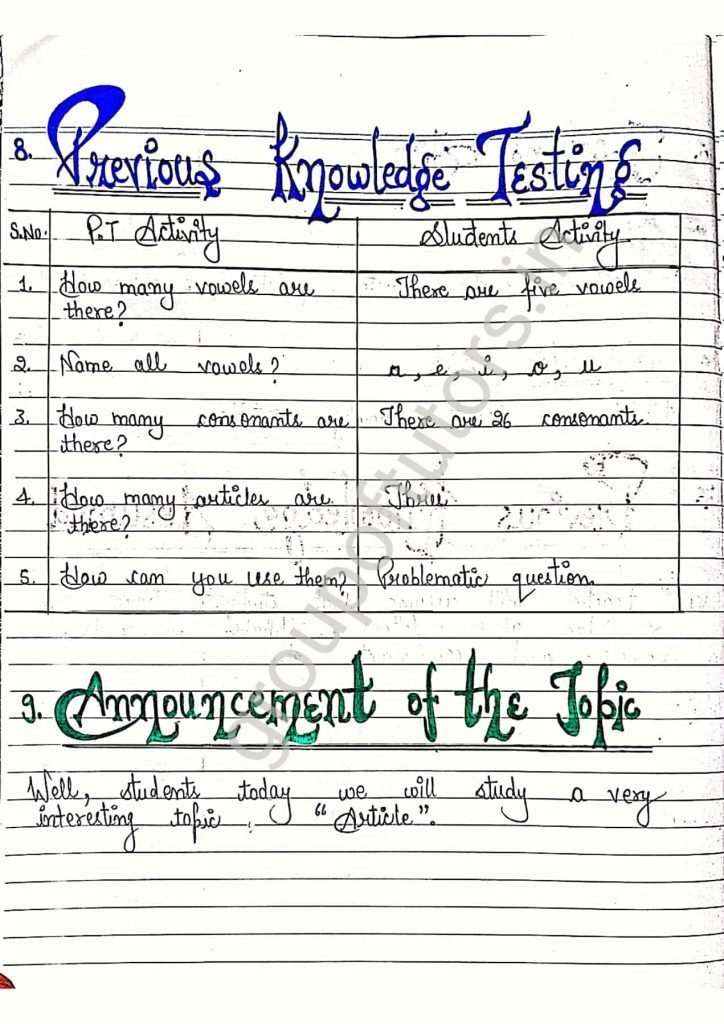 8. Previous Knowledge Testing
S.No. P.T Activity Students Activity
1. How many vowels are There are five vowels
there?
2. Name all vowels? a, e, i, o, u
3. How many consonants are There are 26 consonants.
there?
4. How many articles are Three
there?
5. How can you use them? Problematic question.
9. Announcement of the Topic
Well, students today we will study a very
interesting topic. "Article".
groupoftutors.in